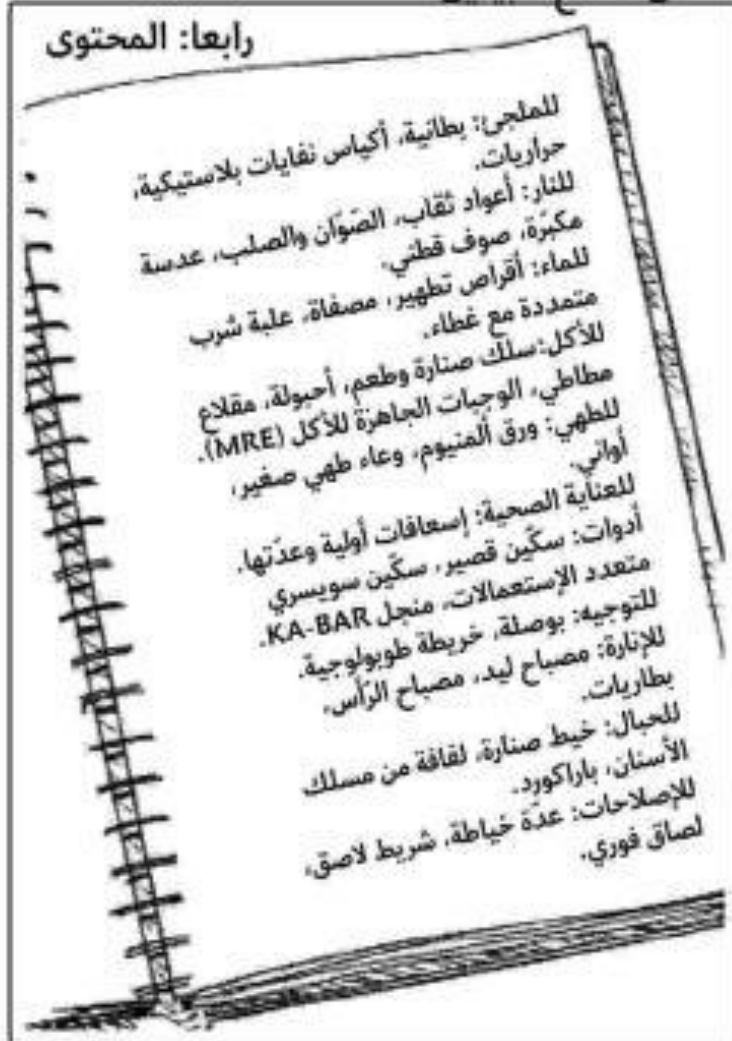 رابعا: المحتوى
للملجئ: بطانية، أكياس نفايات بلاستيكية،
حراريات.
للنار: أعواد ثقاب، الصّوّان والصلب، عدسة
مكبّرة، صوف قطني.
للماء: أقراص تطهير، مصفاة، علبة شرب
متمددة مع غطاء.
للأكل:سلك صنارة وطعم، أحبولة، مقلاع
مطاطي، الوجبات الجاهزة للأكل (MRE).
للطهي: ورق ألمنيوم، وعاء طهي صغير،
أواني.
للعناية الصحية: إسعافات أولية وعدّتها.
أدوات: سكّين قصير، سكّين سويسري
متعدد الإستعمالات، منجل KA-BAR.
للتوجيه: بوصلة، خريطة طوبولوجية.
للإنارة: مصباح ليد، مصباح الرّأس،
بطاريات.
للحبال: خيط صنارة، لفافة من مسلك
الأسنان، باراكورد.
للإصلاحات: عدّة خياطة، شريط لاصق،
لصاق فوري.